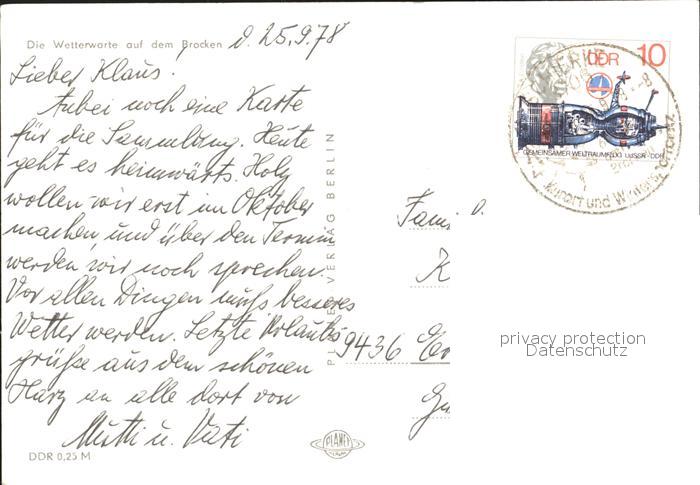 Die Wetterwarte auf dem Brocken d. 25.9.78
Lieber Klaus.
Anbei noch eine Karte
für die Sammlung. Heute
geht es heimwärts. Holz
wollen wir erst im Oktober
machen, und über den Termin
werden wir noch sprechen.
Vor allen Dingen muß besseres
Wetter werden. Letzte Urlaubs
grüße aus dem schönen
Harz an alle dort von
Mutti u. Vati
DDR 0,25 M
PLANET VERLAG BERLIN
PLANET
DDR 10
GEMEINSAMER WELTRAUMFLUG UdSSR-DDR
Kurort und
Fam
K
9436
privacy protection
Datenschutz